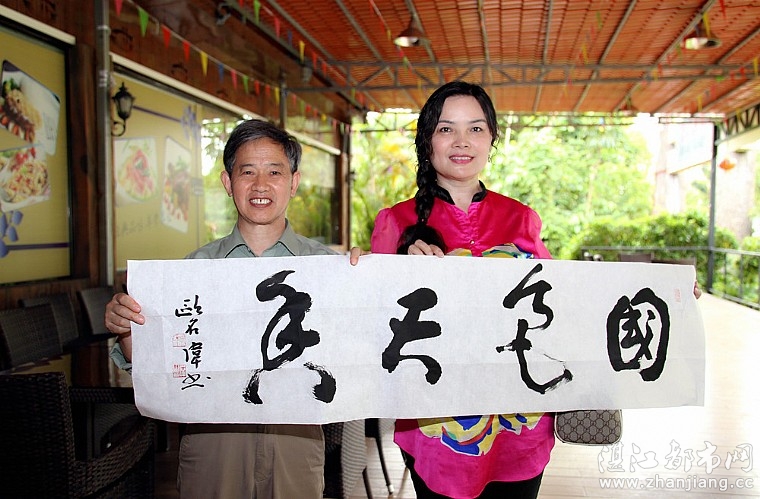 國色天香
欧名偉书
湛江都市网
www.zhanjiang.cc